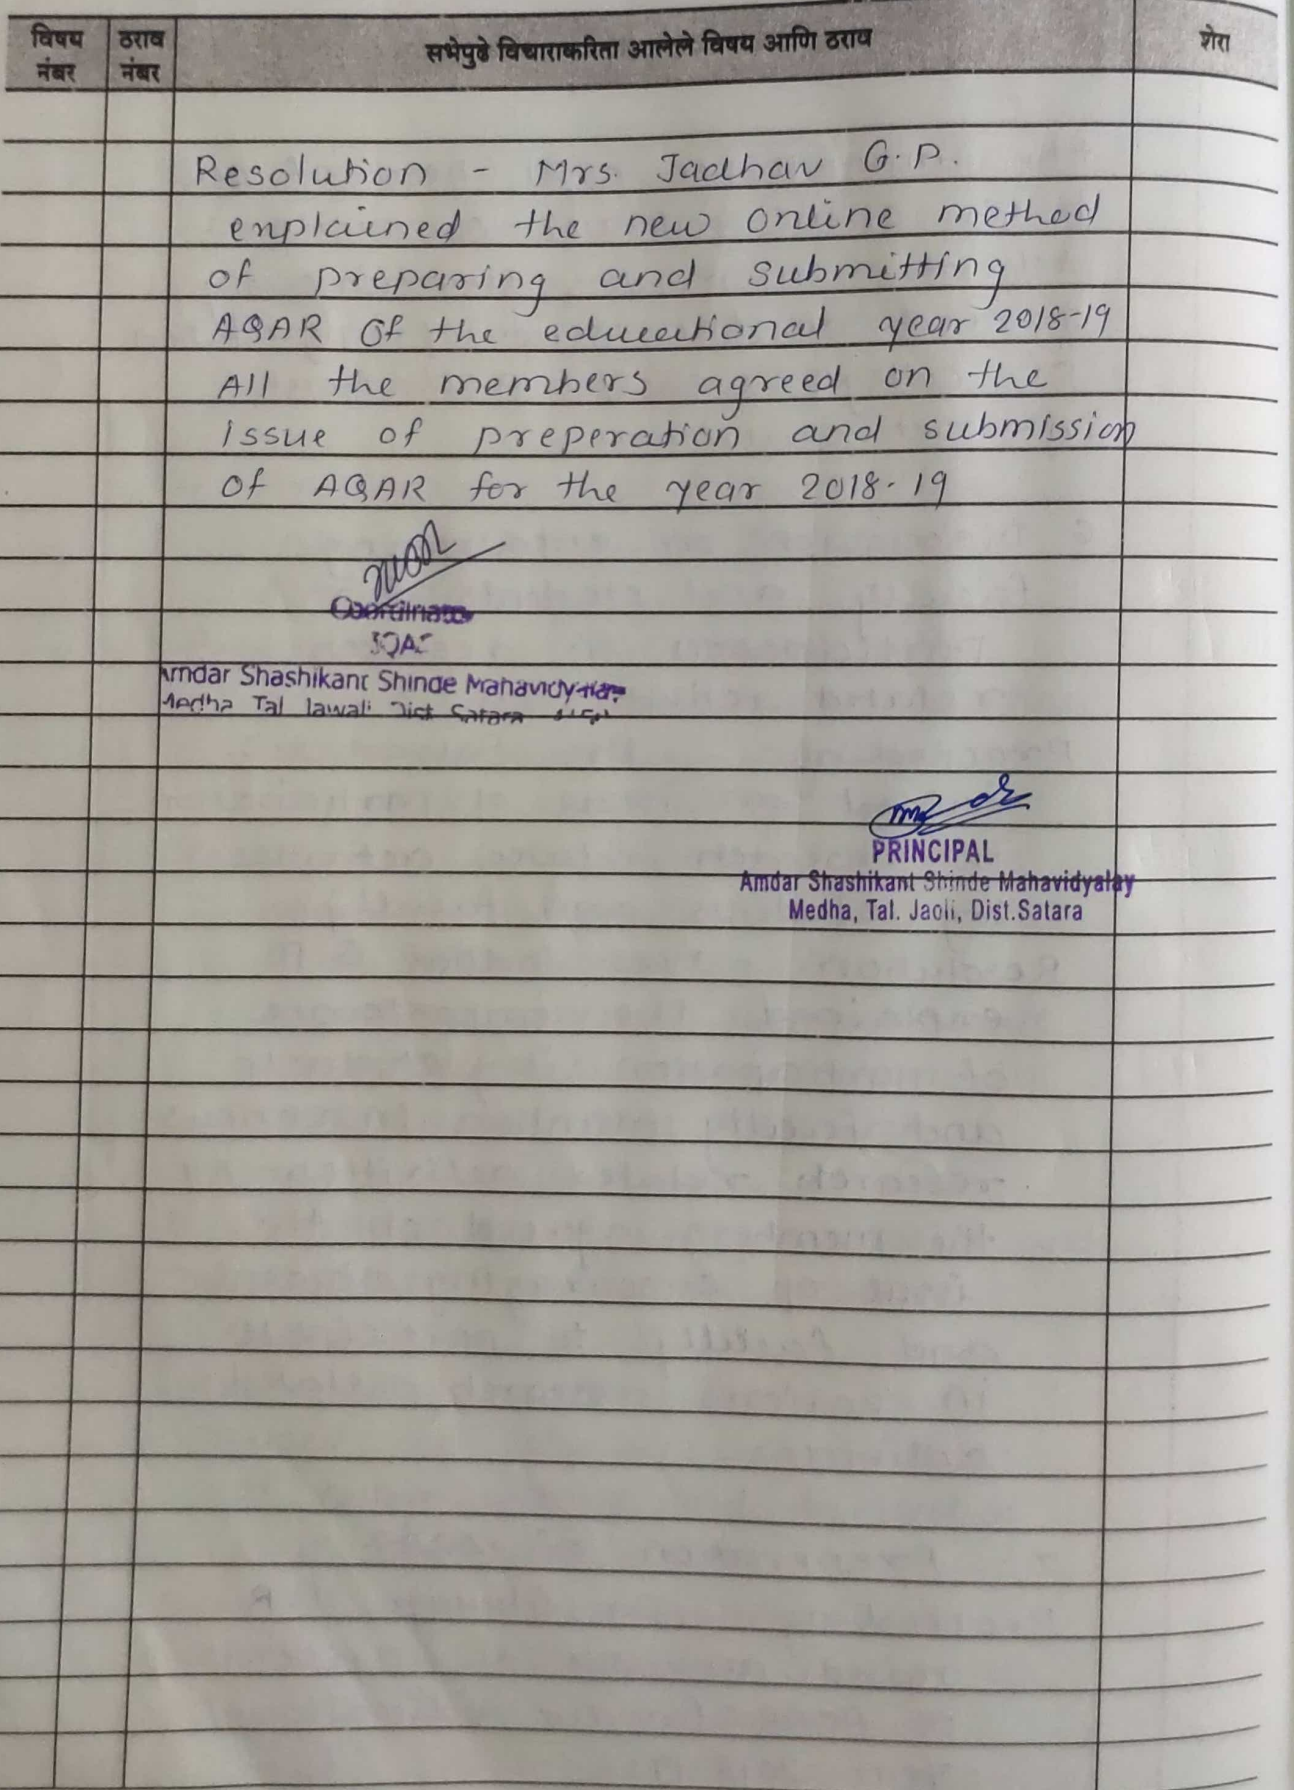 विषय नंबर
ठराव नंबर
सभेपुढे विचाराकरिता आलेले विषय आणि ठराव
शेरा
Resolution - Mrs. Jadhav G.P.
explained the new online method
of preparing and submitting
AQAR of the educational year 2018-19
All the members agreed on the
issue of preperation and submission
of AQAR for the year 2018-19
Coordinator
IQAC
Amdar Shashikant Shinde Mahavidyalay
Medha Tal Jawali Dist Satara
PRINCIPAL
Amdar Shashikant Shinde Mahavidyalay
Medha, Tal. Jaoli, Dist.Satara